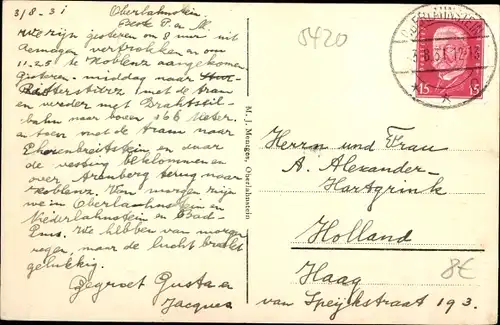 3/8-31 Oberlahnstein.
Beste P. en M.
We zijn gisteren om 8 uur uit
Remagen vertrokken en om
11.25 te Koblenz aangekomen.
Gisteren-middag naar
Rittersturz met de tram
en verder met Drahtseil-
bahn naar boven 166 Meter.
en toen met de tram naar
Ehrenbreitstein en daar
de vesting beklommen en
over Arenberg terug naar
Koblenz. Van morgen zijn
we in Oberlahnstein en
Niederlahnstein en Bad-
Ems. We hebben van morgen
regen, maar de lucht breekt
gelukkig.
Gegroet Gusta en
Jacques
M. J. Mentges, Oberlahnstein
5420
OBERLAHNSTEIN
3.8.31.12-13
15 15
Herrn und Frau
A. Alexander-
Hartgrink
Holland
Haag
van Speijkstraat 193.
8€